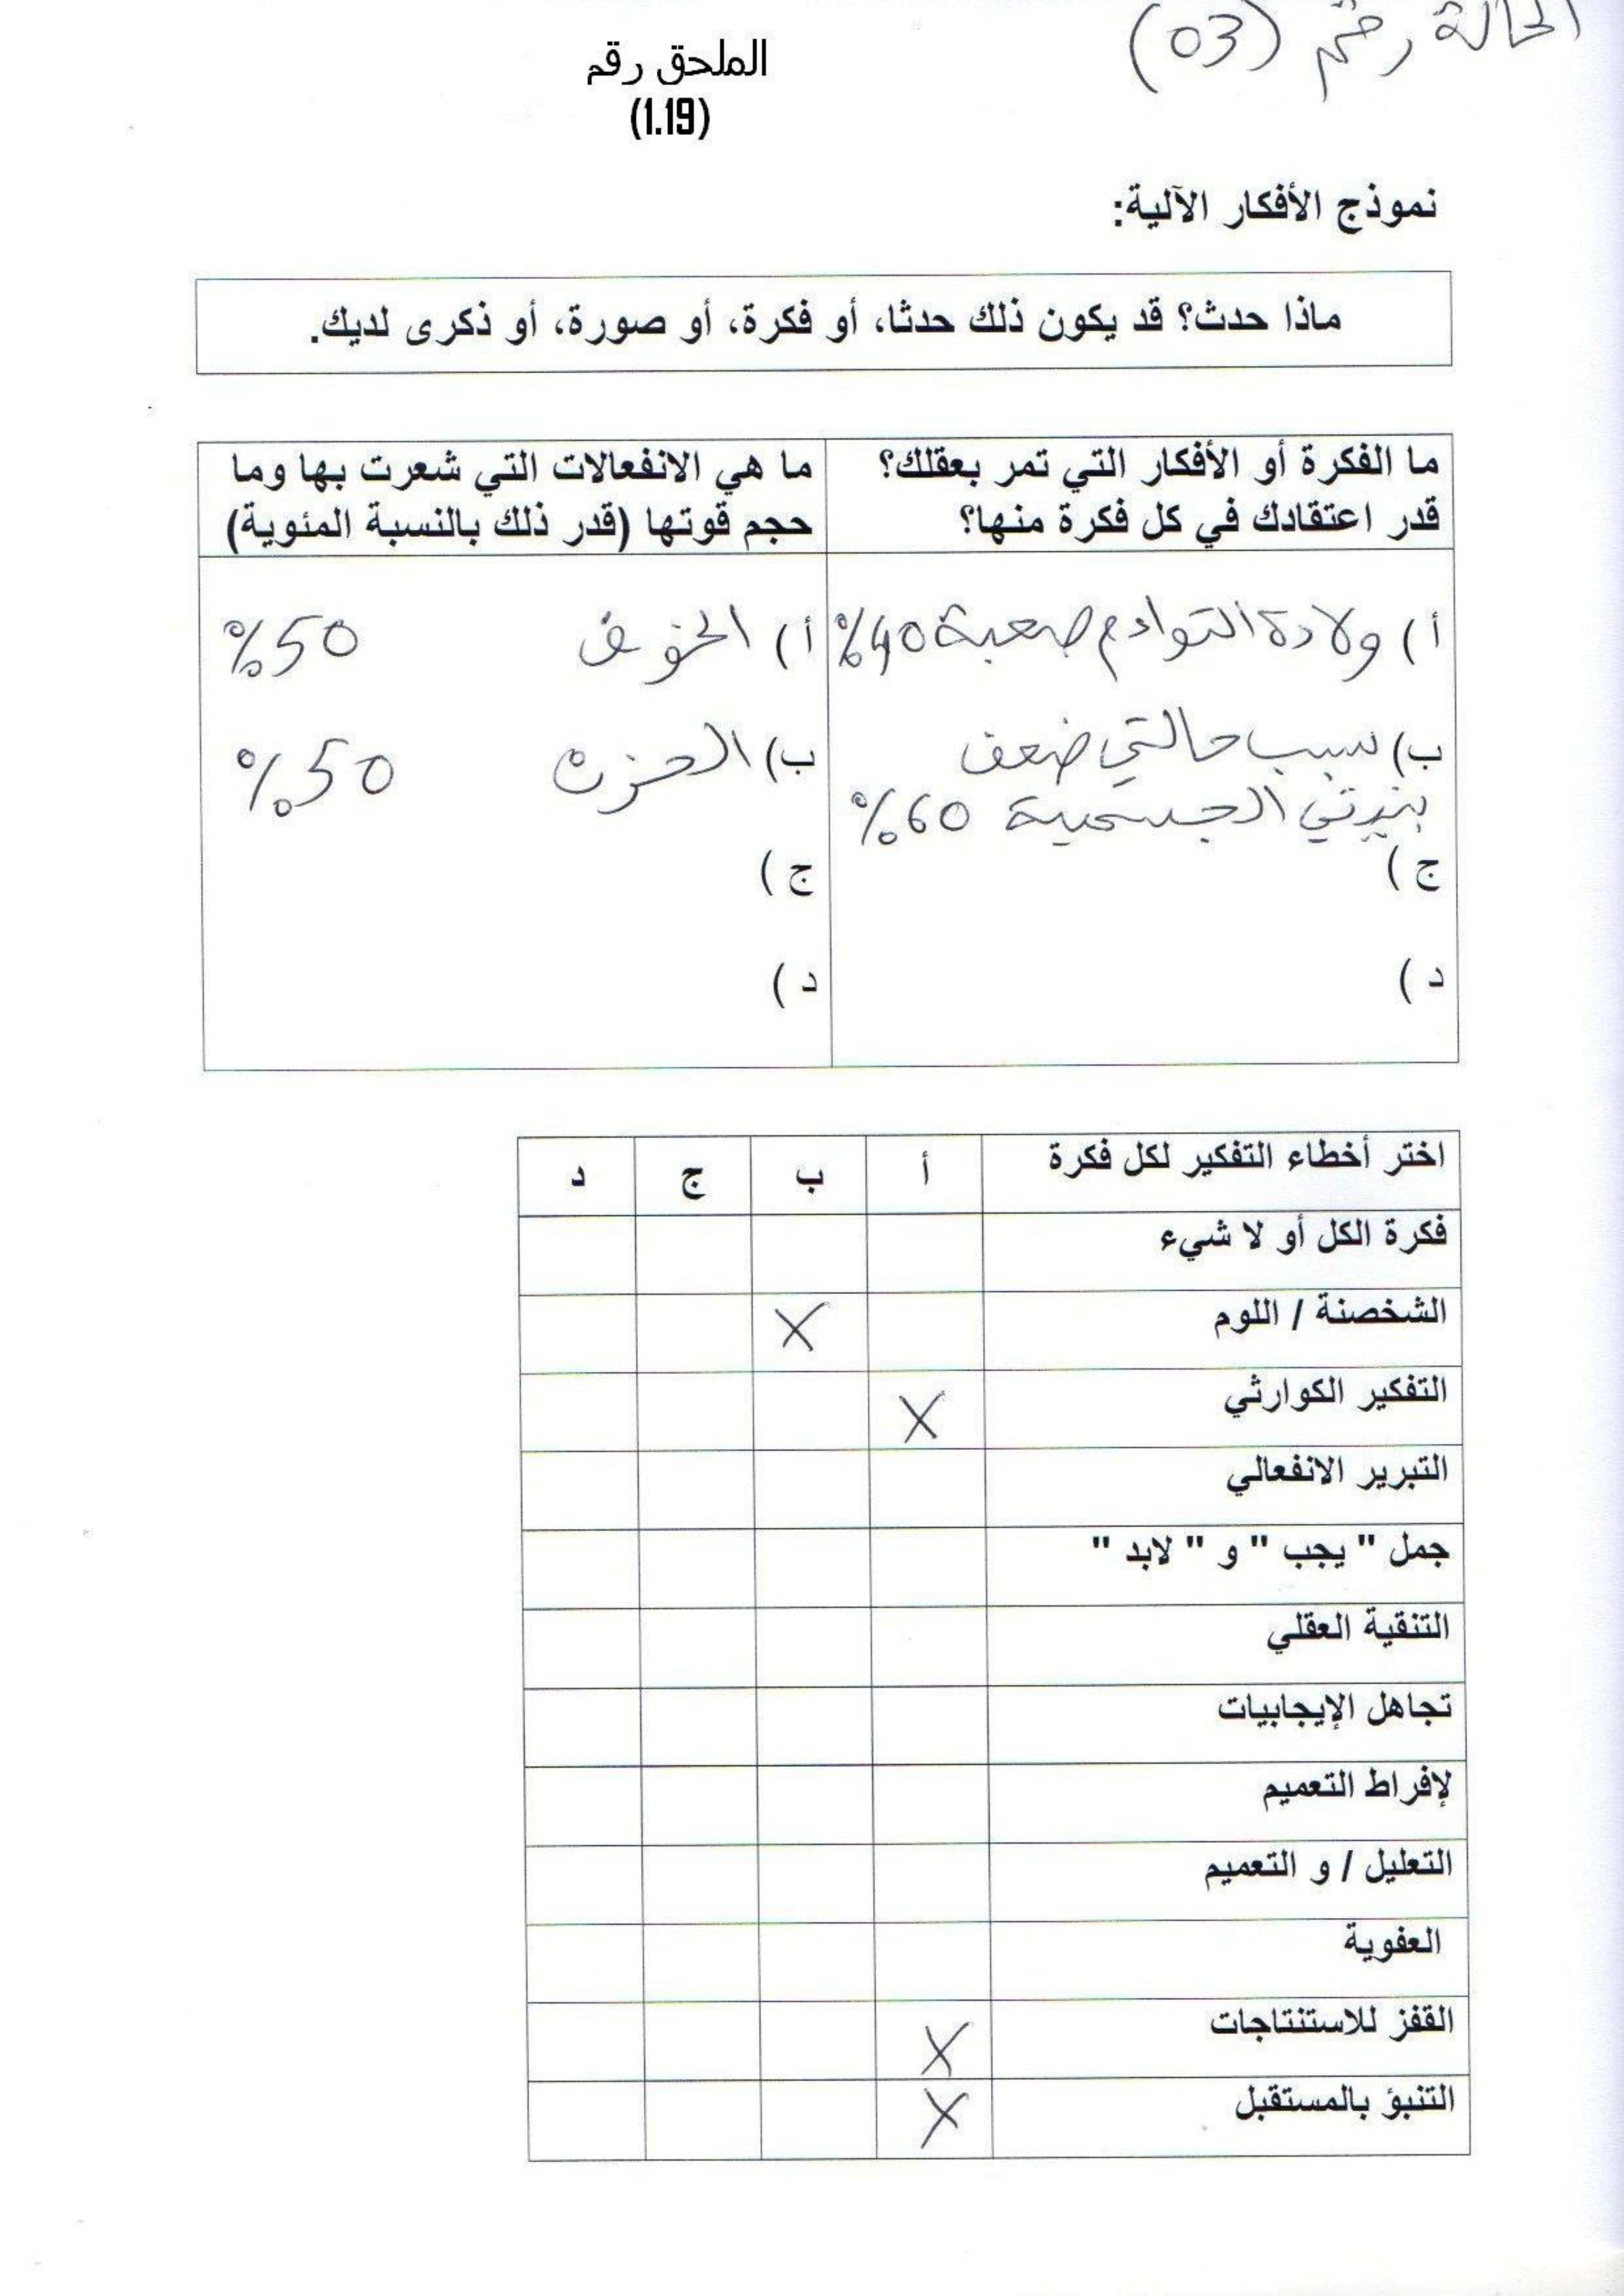 الحالة رقم (03)
الملحق رقم
(1.19)
نموذج الأفكار الآلية:
ماذا حدث؟ قد يكون ذلك حدثا، أو فكرة، أو صورة، أو ذكرى لديك.
ما الفكرة أو الأفكار التي تمر بعقلك؟
قدر اعتقادك في كل فكرة منها؟
ما هي الانفعالات التي شعرت بها وما
حجم قوتها (قدر ذلك بالنسبة المئوية)
أ) ولادة التوادم صعبة 40%
ب) سبب حالتي ضعف
بنيتي الجسمية 60%
ج)
د)
أ) الخوف 50%
ب) الحزن 50%
ج)
د)
اختر أخطاء التفكير لكل فكرة أ ب ج د
فكرة الكل أو لا شيء
الشخصنة / اللوم X
التفكير الكوارثي X
التبرير الانفعالي
جمل " يجب " و " لابد "
التنقية العقلي
تجاهل الإيجابيات
لإفراط التعميم
التعليل / و التعميم
العفوية
القفز للاستنتاجات X
التنبؤ بالمستقبل X